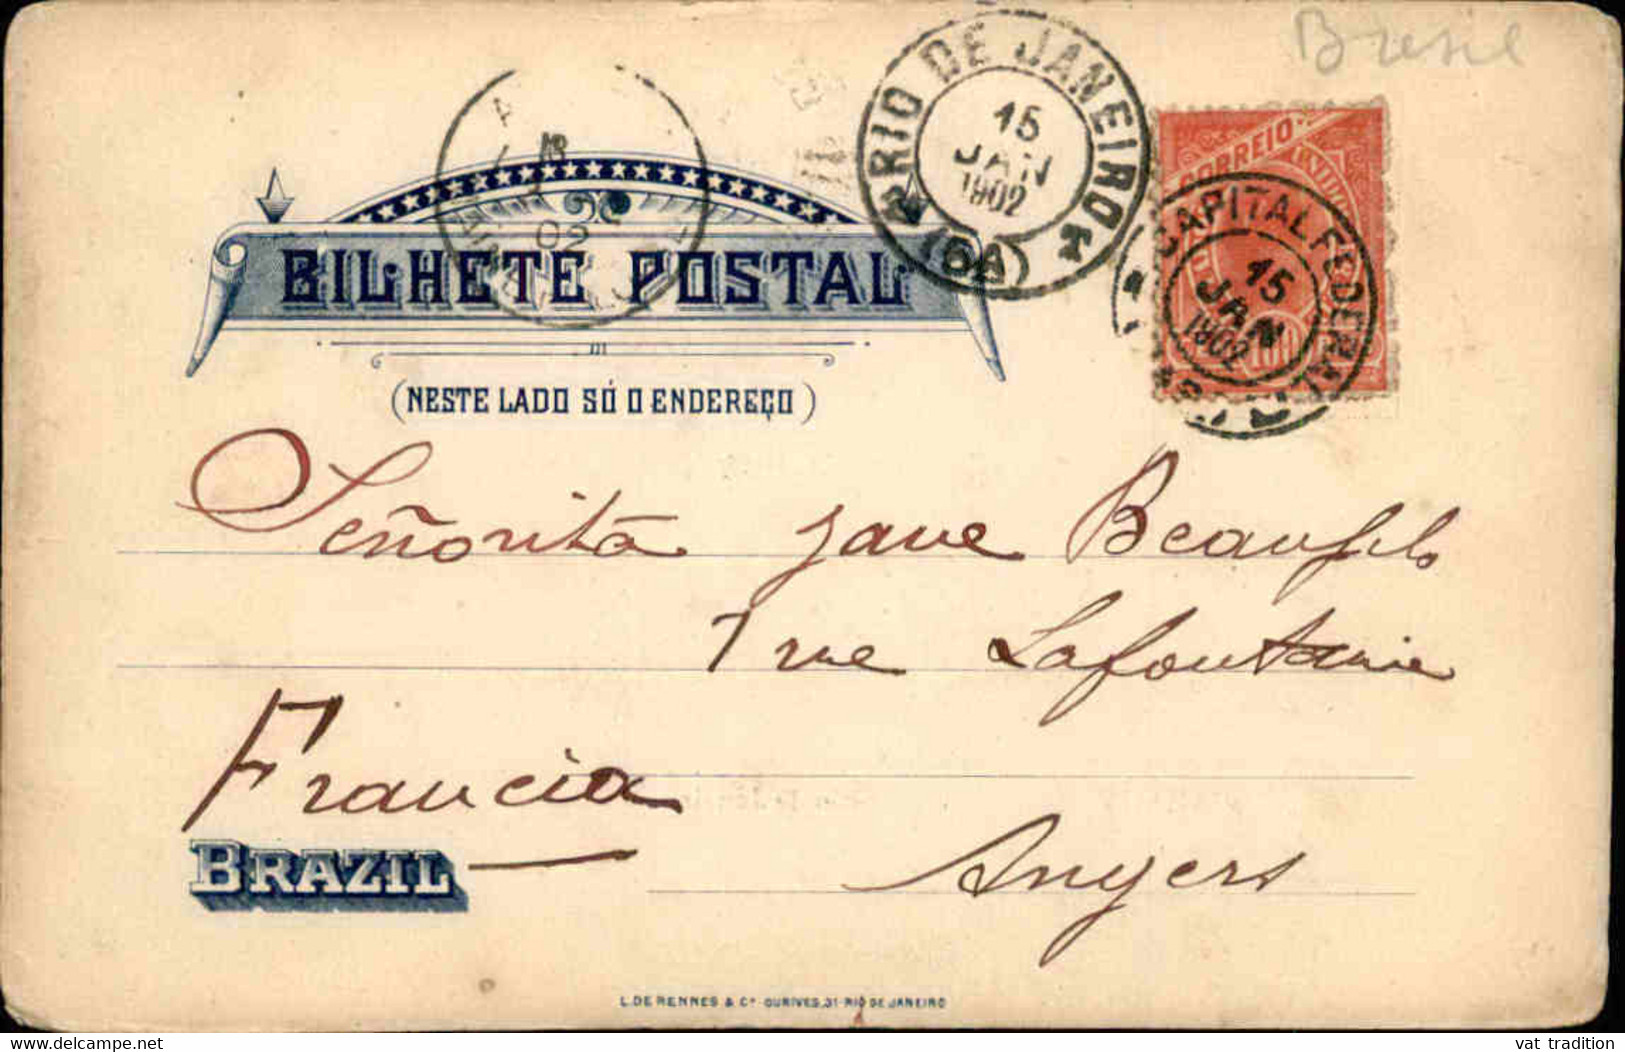 Bresil
RIO DE JANEIRO
15
JAN
1902
(6A)
CORREIO
100
CAPITAL FEDERAL
15
JAN
1902
02
BILHETE POSTAL
(NESTE LADO SÓ O ENDEREÇO)
Señorita Jane Beaufils
7 rue Lafontaine
Francia
BRAZIL
Angers
L. DE RENNES & Cº OURIVES, 31 RIO DE JANEIRO
vat tradition